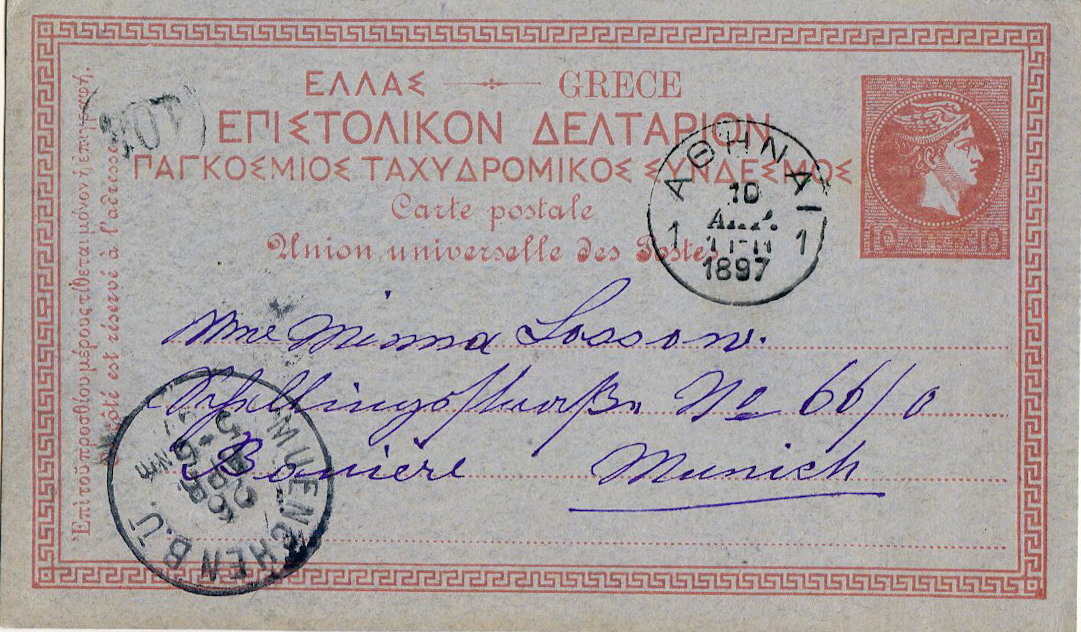 ΕΛΛΑΣ — GRECE
ΕΠΙΣΤΟΛΙΚΟΝ ΔΕΛΤΑΡΙΟΝ
ΠΑΓΚΟΣΜΙΟΣ ΤΑΧΥΔΡΟΜΙΚΟΣ ΣΥΝΔΕΣΜΟΣ
Carte postale
Union universelle des Postes
10 ΛΕΠΤΑ 10
ΑΘΗΝΑΙ
10
ΑΠΡ.
1 1
1897
Mme Minna Lossow.
Schellingstraße No 66/0
Bavière Munich
MUENCHEN B.U.
Nm
Ἐπὶ τοῦ προσθίου μέρους τίθεται μόνον ἡ ἐπιγραφή.
Ce côté est réservé à l'adresse